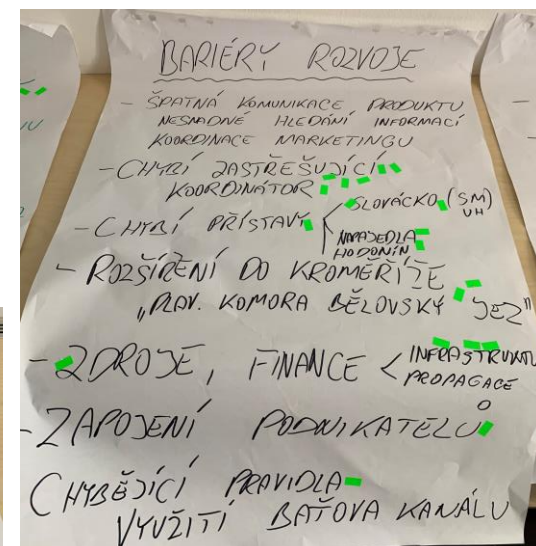 BARIÉRY ROZVOJE
- ŠPATNÁ KOMUNIKACE PRODUKTU
NESNADNÉ HLEDÁNÍ INFORMACÍ
KOORDINACE MARKETINGU
- CHYBÍ ZASTŘEŠUJÍCÍ
KOORDINÁTOR
- CHYBÍ PŘÍSTAVY < SLOVÁCKO (SM)
UH
NAPAJEDLA
HODONÍN
- ROZŠÍŘENÍ DO KROMĚŘÍŽE
"PLAV. KOMORA BĚLOVSKÝ JEZ"
- ZDROJE, FINANCE < INFRASTRUKTU
PROPAGACE
- ZAPOJENÍ PODNIKATELŮ
CHYBĚJÍCÍ PRAVIDLA
VYUŽITÍ BAŤOVA KANÁLU